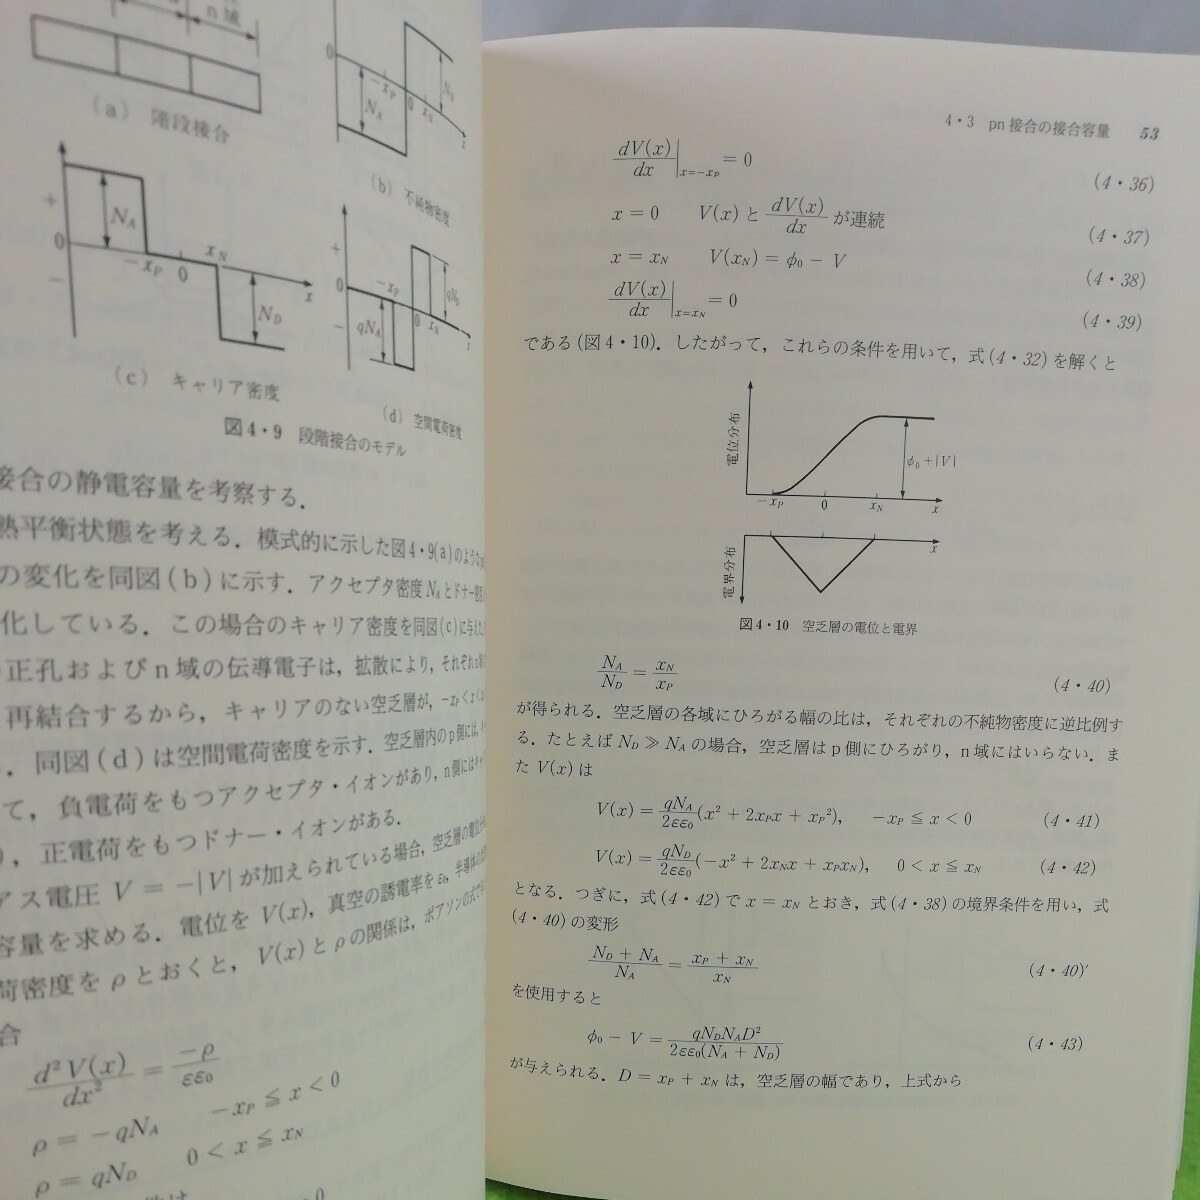 n 域
0
N_A
−x_P
0
x_N
N_D
x
(a) 階段接合
(b) 不純物密度
+
0
−
N_A
−x_P
0
x_N
N_D
x
(c) キャリア密度
+
0
−
−x_P
qN_A
0
x_N
qN_D
x
(d) 空間電荷密度
図4・9 段階接合のモデル
接合の静電容量を考察する.
熱平衡状態を考える. 模式的に示した図4・9(a)のような
の変化を同図(b)に示す. アクセプタ密度 N_A とドナー密度
化している. この場合のキャリア密度を同図(c)に与えた
正孔および n 域の伝導電子は, 拡散により, それぞれ
再結合するから, キャリアのない空乏層が, −x_P < x <
. 同図(d)は空間電荷密度を示す. 空乏層内の p 側には,
て, 負電荷をもつアクセプタ・イオンがあり, n 側には
, 正電荷をもつドナー・イオンがある.
アス電圧 V = −|V| が加えられている場合, 空乏層の
容量を求める. 電位を V(x), 真空の誘電率を ε₀,
荷密度を ρ とおくと, V(x) と ρ の関係は, ポアソンの式で
合
d²V(x)/dx² = −ρ/εε₀
ρ = −qN_A −x_P ≦ x < 0
ρ = qN_D 0 < x ≦ x_N
4・3 pn 接合の接合容量 53
dV(x)/dx |_{x=−x_P} = 0 (4・36)
x = 0 V(x) と dV(x)/dx が連続 (4・37)
x = x_N V(x_N) = φ₀ − V (4・38)
dV(x)/dx |_{x=x_N} = 0 (4・39)
である(図4・10). したがって, これらの条件を用いて, 式(4・32)を解くと
電位分布
φ₀+|V|
−x_P 0 x_N x
電界分布
x
図4・10 空乏層の電位と電界
N_A/N_D = x_N/x_P (4・40)
が得られる. 空乏層の各域にひろがる幅の比は, それぞれの不純物密度に逆比例す
る. たとえば N_D ≫ N_A の場合, 空乏層は p 側にひろがり, n 域にはいらない. ま
た V(x) は
V(x) = qN_A/2εε₀ (x² + 2x_Px + x_P²), −x_P ≦ x < 0 (4・41)
V(x) = qN_D/2εε₀ (−x² + 2x_Nx + x_Px_N), 0 < x ≦ x_N (4・42)
となる. つぎに, 式(4・42)で x = x_N とおき, 式(4・38)の境界条件を用い, 式
(4・40)の変形
N_D + N_A/N_A = x_P + x_N/x_N (4・40)′
を使用すると
φ₀ − V = qN_DN_AD²/2εε₀(N_A + N_D) (4・43)
が与えられる. D = x_P + x_N は, 空乏層の幅であり, 上式から